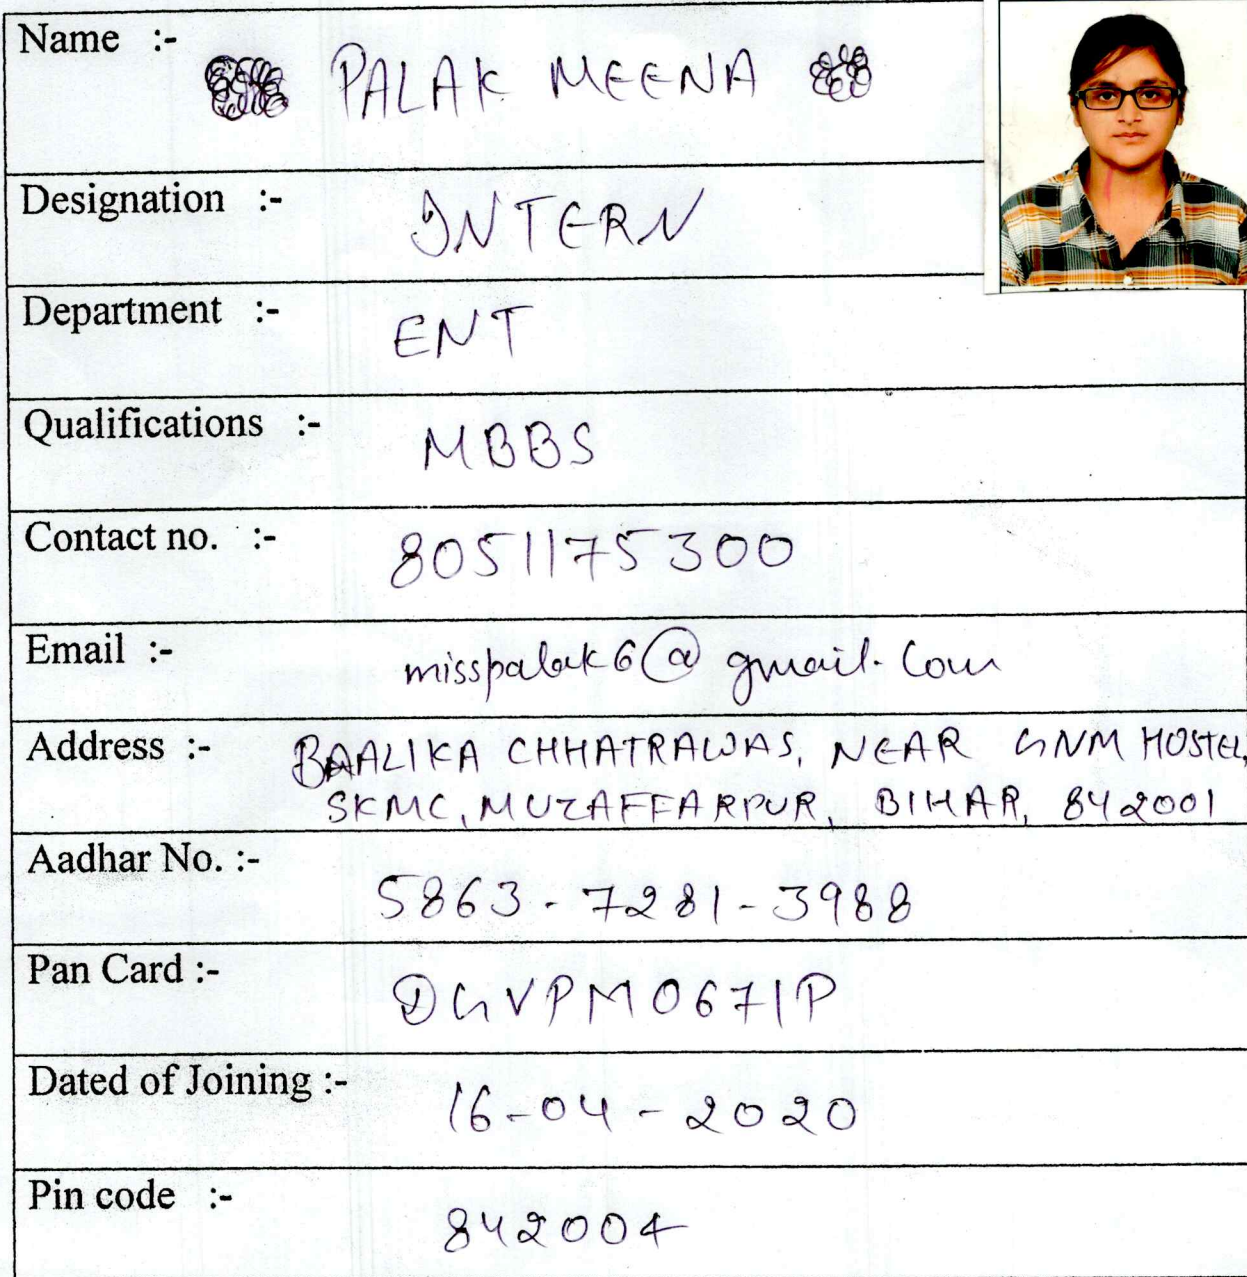 Name :- PALAK MEENA
Designation :- INTERN
Department :- ENT
Qualifications :- MBBS
Contact no. :- 8051175300
Email :- misspalak6@gmail.com
Address :- BAALIKA CHHATRAWAS, NEAR GNM HOSTEL,
SKMC, MUZAFFARPUR, BIHAR, 842001
Aadhar No. :- 5863-7281-3988
Pan Card :- DGVPM0671P
Dated of Joining :- 16-04-2020
Pin code :- 842004